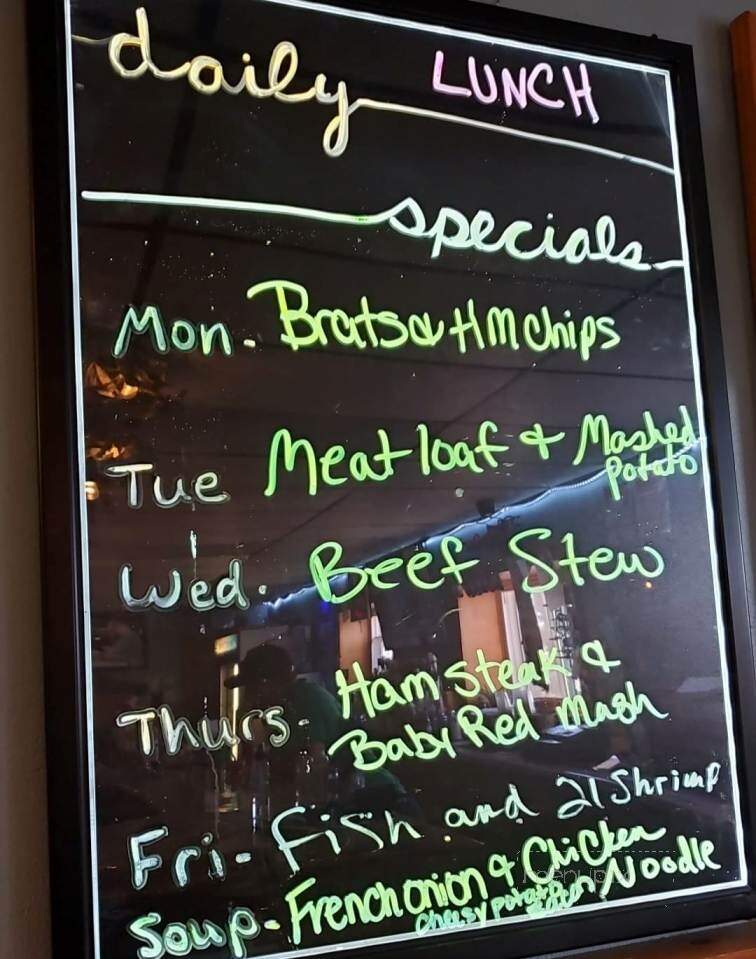 daily LUNCH
specials
Mon. Brats & HM Chips
Tue Meatloaf & Mashed
Potato
Wed. Beef Stew
Thurs- Ham steak &
Baby Red Mash
Fri- Fish and 21 Shrimp
Soup- French onion & Chicken
Noodle
Cheesy potato